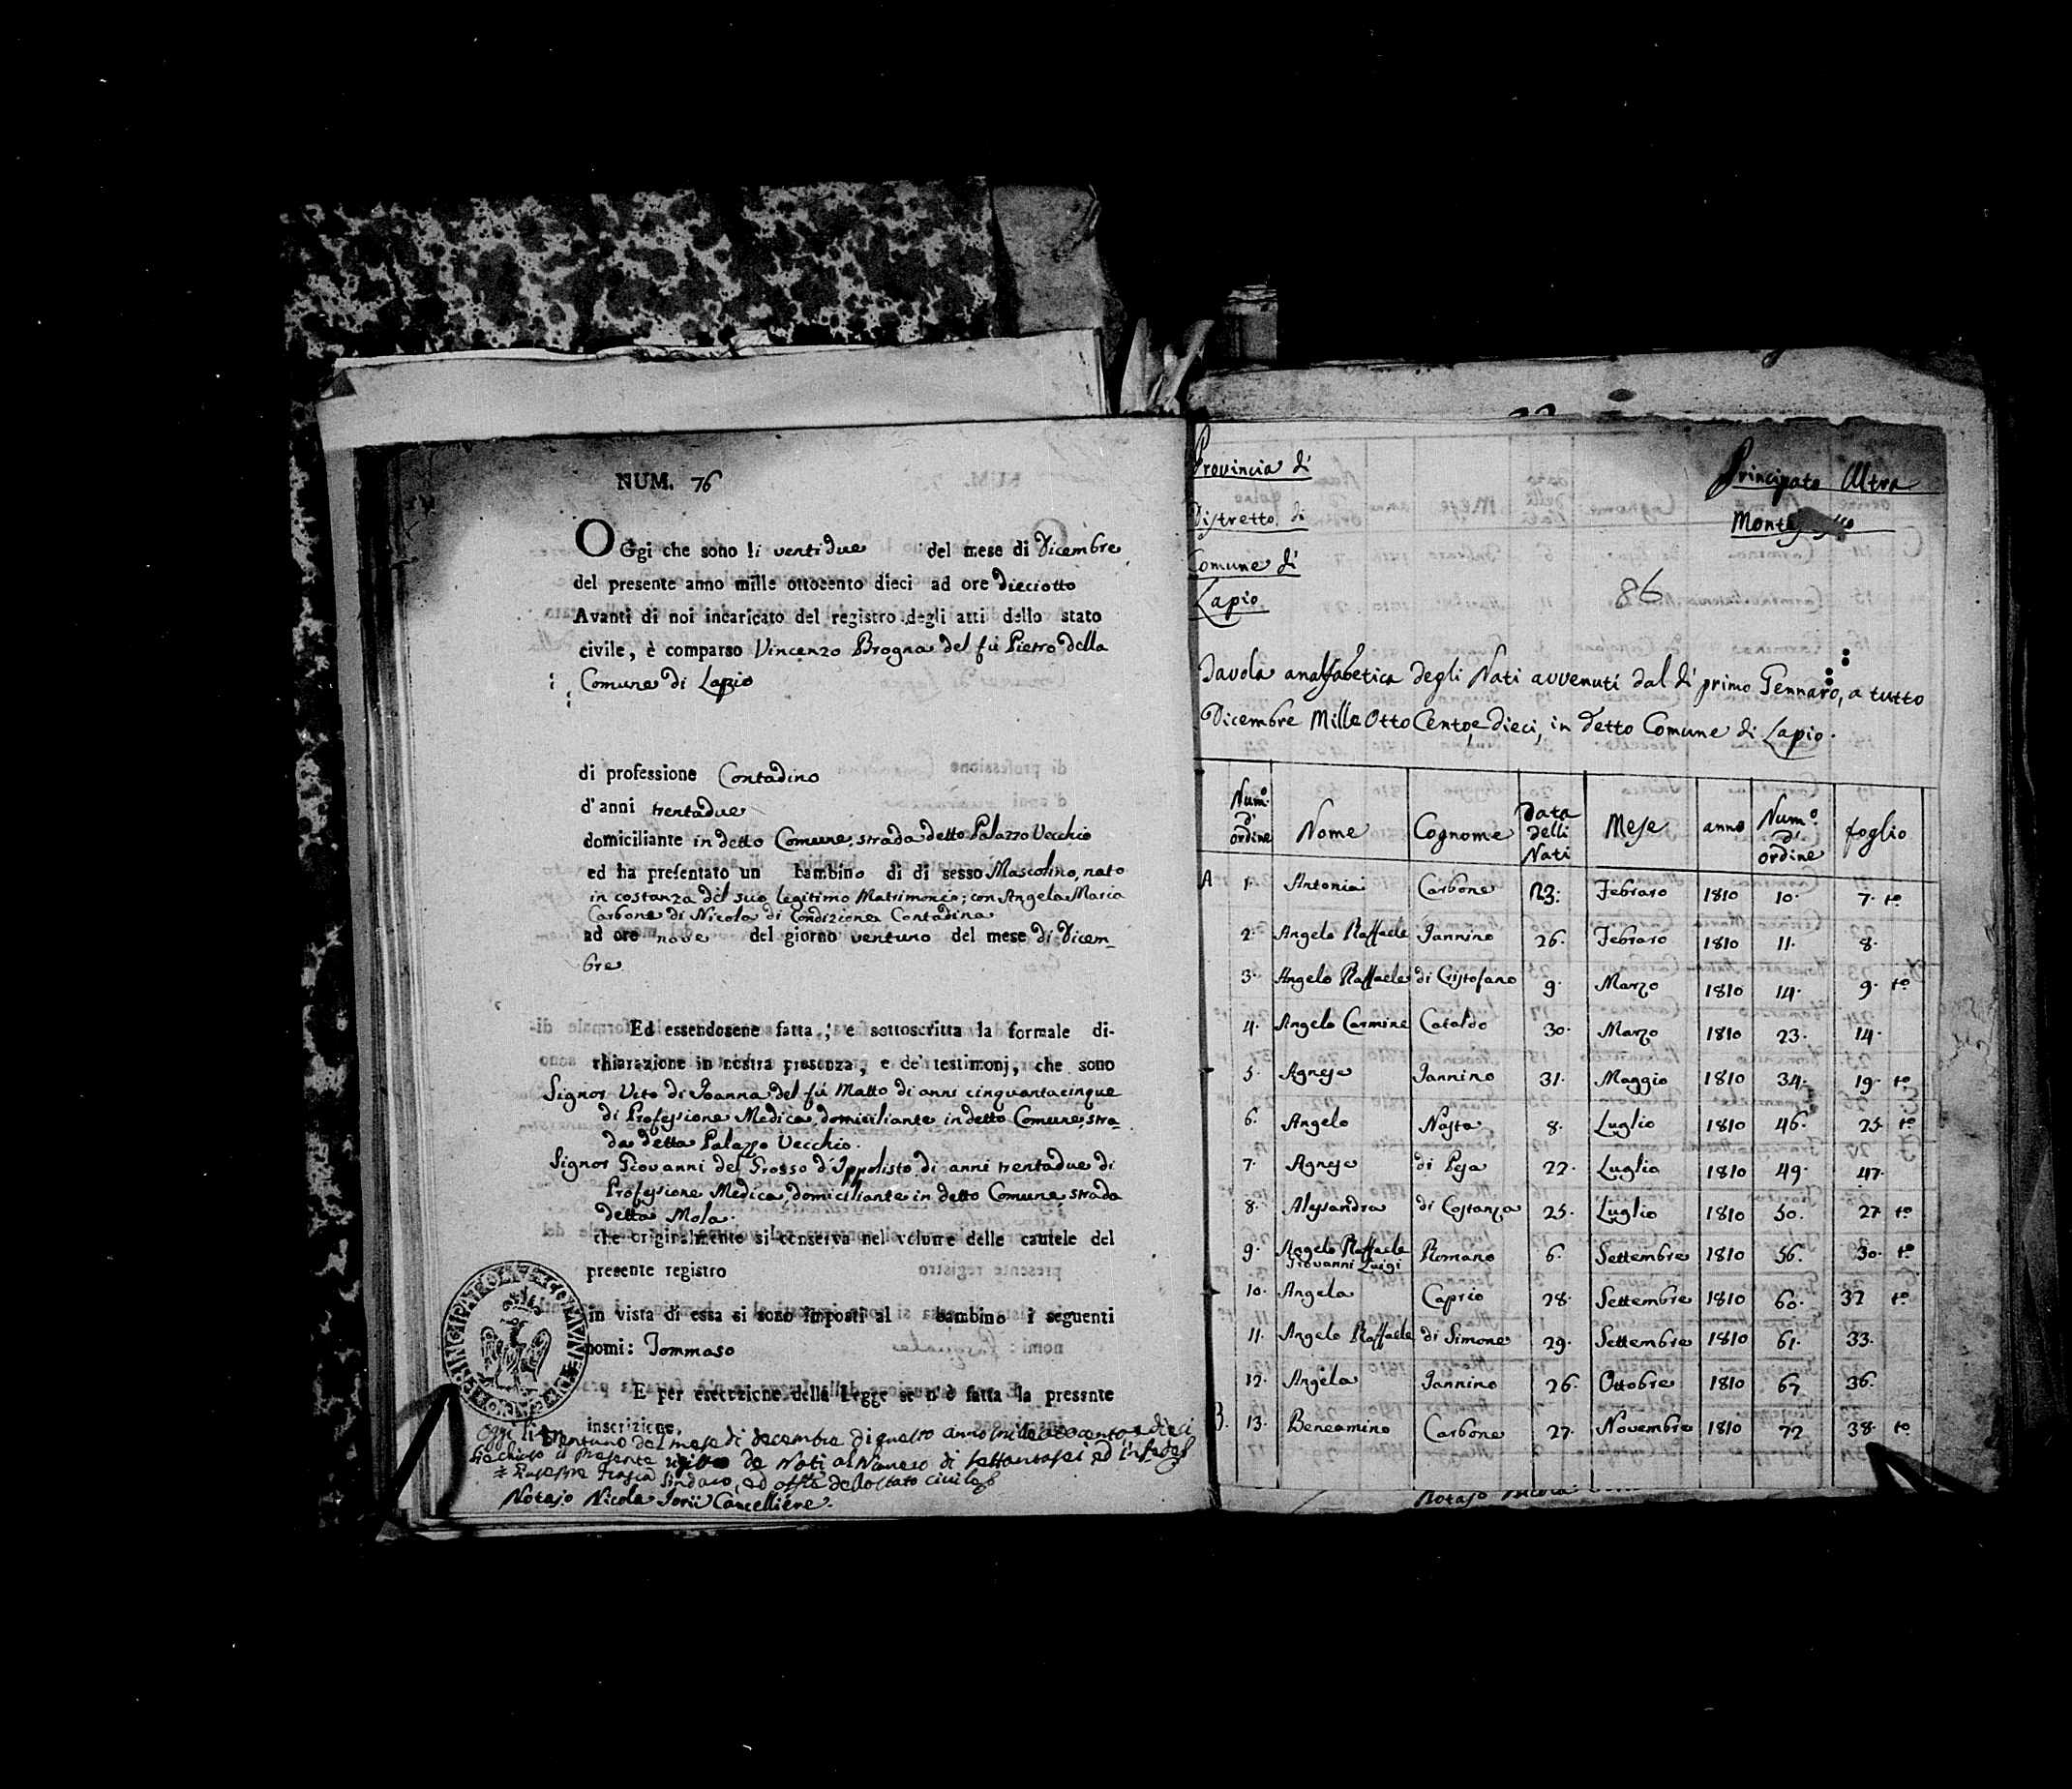 NUM. 76
OGgi che sono li ventidue del mese di Dicembre
del presente anno mille ottocento dieci ad ore dieciotto
Avanti di noi incaricato del registro degli atti dello stato
civile, è comparso Vincenzo Brogna del fù Pietro della
Comune di Lapio
di professione Contadino
d'anni trentadue
domiciliante in detto Comune, strada detto Palazzo Vecchio
ed ha presentato un bambino di di sesso Mascolino, nato
in costanza del suo legitimo Matrimonio; con Angela Maria
Carbone di Nicola di Condizione Contadina
ad ore nove del giorno ventuno del mese di Dicem-
bre
Ed essendosene fatta, e sottoscritta la formale di-
chiarazione in nostra presenza, e de' testimonj, che sono
Signor Vito di Joanna del fù Matto di anni cinquantacinque
di Professione Medica, domiciliante in detto Comune, stra
da detta Palazzo Vecchio.
Signor Giovanni del Grosso d'Ippolisto di anni trentadue di
Professione Medica, domiciliante in detto Comune, strada
detta Mola.
che originalmente si conserva nel volume delle cautele del
presente registro
in vista di essa si sono imposti al bambino i seguenti
nomi: Tommaso
E per esecuzione della Legge se n'è fatta la presente
inscrizione.
Oggi li trentuno del mese di decembre di questo anno mille ottocento, e dieci
si è chiuso il presente de Nati al Numero di settantasei ed in fede
Sindaco, ed offle dello stato civile
Notajo Nicola Jorii Cancelliere.
Provincia di Principato Ultra
Distretto di
Comune di
Lapio
86
Tavola analfabetica degli Nati avvenuti dal dì primo Gennaro, a tutto
Dicembre Mille Otto Cento, e dieci, in detto Comune di Lapio.
Num.o d' ordine Nome Cognome Data delli Nati Mese anno Num.o d' ordine foglio
A 1. Antonia Carbone 23. Febraro 1810 10. 7. to
2. Angelo Raffaele Jannino 26. Febraro 1810 11. 8.
3. Angelo Raffaele di Cristofano 9. Marzo 1810 14. 9. to
4. Angelo Carmine Cataldo 30. Marzo 1810 23. 14.
5. Agnese Jannino 31. Maggio 1810 34. 19. to
6. Angelo Nasta 8. Luglio 1810 46. 25. to
7. Agnese di Pesa 22. Luglio 1810 49. 47.
8. Alessandra di Costanza 25. Luglio 1810 50. 27. to
9. Angelo Raffaele Giovanni Luigi Romano 6. Settembre 1810 56. 30. to
10. Angela Caprio 28. Settembre 1810 60. 32 to
11. Angelo Raffaele di Simone 29. Settembre 1810 61. 33.
12. Angela Jannino 26. Ottobre 1810 67 36.
B. 13. Beneamino Carbone 27. Novembre 1810 72 38. to
Notajo Nicola